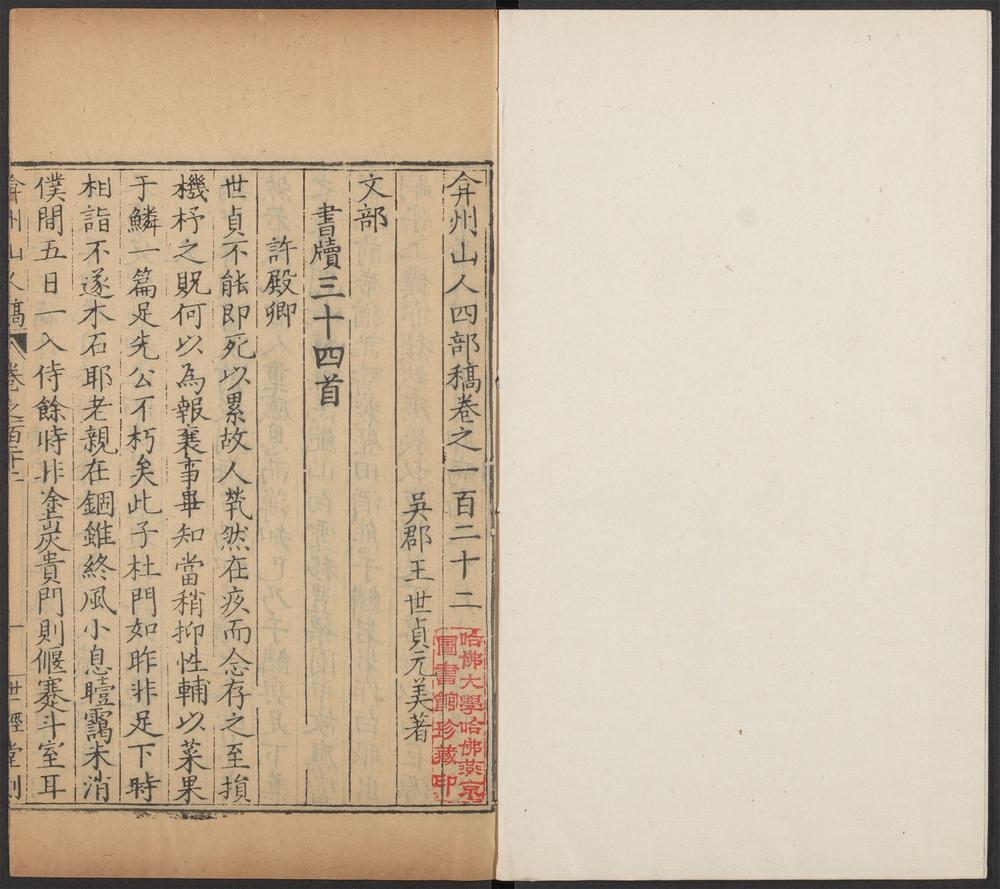 弇州山人四部稿卷之一百二十二
吳郡王世貞元美著
文部
書牘三十四首
許殿卿
世貞不能即死以累故人煢然在疚而念存之至損
機杼之貺何以為報襄事畢知當稍抑性輔以菜果
于鱗一篇足先公不朽矣此子杜門如昨非足下時
相詣不遂木石耶老親在錮雖終風小息曀霿未消
僕間五日一入侍餘時非塗炭貴門則偃蹇斗室耳
弇州山人稿 卷之百二十二 一 世經堂刻
哈佛大學哈佛燕京
圖書館珍藏印